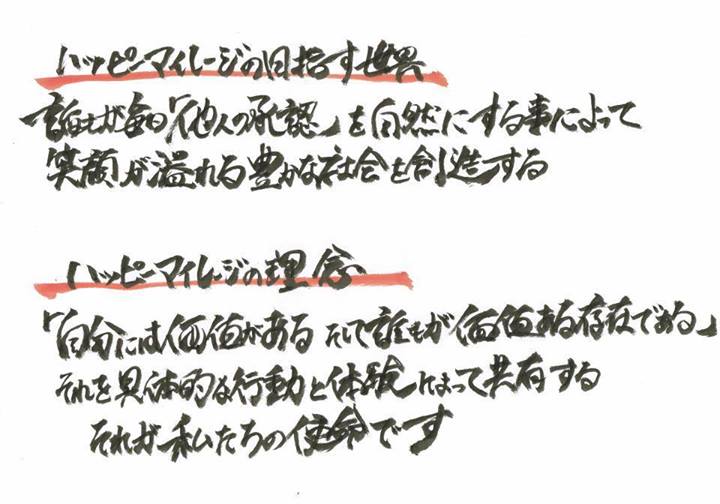 ハッピーマイレージの目指す世界
誰もが毎日「他人の承認」を自然にする事によって
笑顔が溢れる豊かな社会を創造する
ハッピーマイレージの理念
「自分には価値がある そして誰もが価値ある存在である」
それを具体的な行動と体験によって共有する
それが私たちの使命です